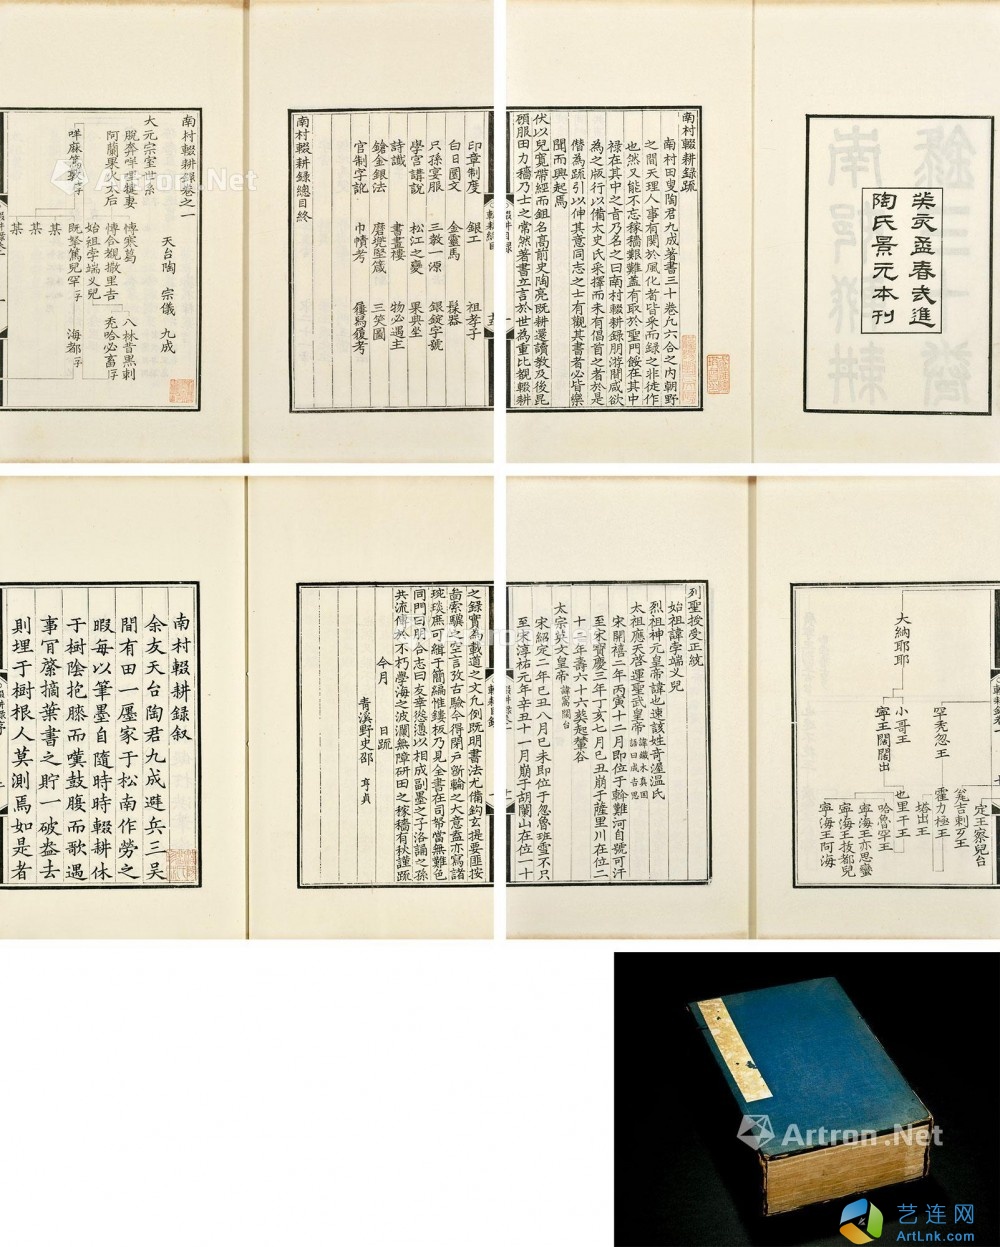 癸亥孟春武進
陶氏景元本刊
南村輟耕錄疏
南村田叟陶君九成著書三十卷凡六合之內朝野
之間天理人事有關於風化者皆采而錄之非徒作
也然又能不忘稼穡艱難蓋有取於聖門餒在其中
祿在其中之旨乃名之曰南村輟耕錄朋游間咸欲
為之版行以備太史氏采擇而未有倡首之者於是
僭為疏引以伸其意同志之士有觀其書者必皆樂
聞而興起焉
伏以兒寬帶經而鉏名高前史陶亮既耕還讀教及後昆
碩服田力穡乃士之常然著書立言於世為重比覩輟耕
印章制度 銀工 祖孝子
白日圖文 金靈馬 髹器
只孫宴服 三教一源 銀錠字號
學宮講說 松江之變 果典坐
詩讖 書畫樓 物必遇主
鎗金銀法 磨兜堅箴 三笑圖
官制字訛 巾幘考 屨舄履考
南村輟耕錄總目終
南村輟耕錄卷之一
天台陶 宗儀 九成
大元宗室世系
脫奔咩哩犍妻
阿蘭果火太后
博寒葛
博合覩撒里吉
始祖孛端义兒
既拏篤兒罕
咩麻篤敦
某
某
某
八林昔黑剌
禿哈必畜
海都
大納耶耶
小哥王
寧王闊闊出
罕禿忽王
霍力極王
也里干王
塔出王
哈魯罕王
寧海王亦思蠻
寧海王拔都兒
寧海王阿海
定王察兒台
列聖授受正統
始祖諱孛端义兒
烈祖神元皇帝諱也速該姓奇渥溫氏
太祖應天啓運聖武皇帝諱鐵木真國語曰成吉思
宋開禧二年丙寅十二月即位于斡難河自號可汗
至宋寶慶三年丁亥七月己丑崩于薩里川在位二
十二年壽六十六葬起輦谷
太宗英文皇帝諱窩闊台
宋紹定二年己丑八月己未即位于忽魯班雪不只
至宋淳祐元年辛丑十一月崩于胡蘭山在位一十
之錄實為載道之文凡例既明書法尤備鈎玄提要匪按
啚索驥之空言攷古驗今得閉戶斲輪之大意盍亦寫諸
琬琰庶可緝于簡編惟鏤板乃見全書在司帑當無難色
同門曰朋合志曰友幸慫慂以相成副墨之子洛誦之孫
共流傳於不朽學海之波瀾無障研田之稼穡有秋謹疏
今月 日疏
青溪野史邵 亨貞
南村輟耕錄叙
余友天台陶君九成避兵三吳
間有田一廛家于松南作勞之
暇每以筆墨自隨時時輟耕休
于樹陰抱膝而嘆鼓腹而歌遇
事肎綮摘葉書之貯一破盎去
則埋于樹根人莫測焉如是者
Artron.Net
艺连网
ArtLnk.com